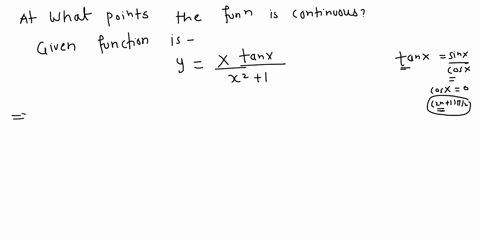 At What points the funn is continuous?
Given function is -
y = x tanx / x² + 1
tanx = sinx / cosx
cosx = 0
(2n+1)π/2
=